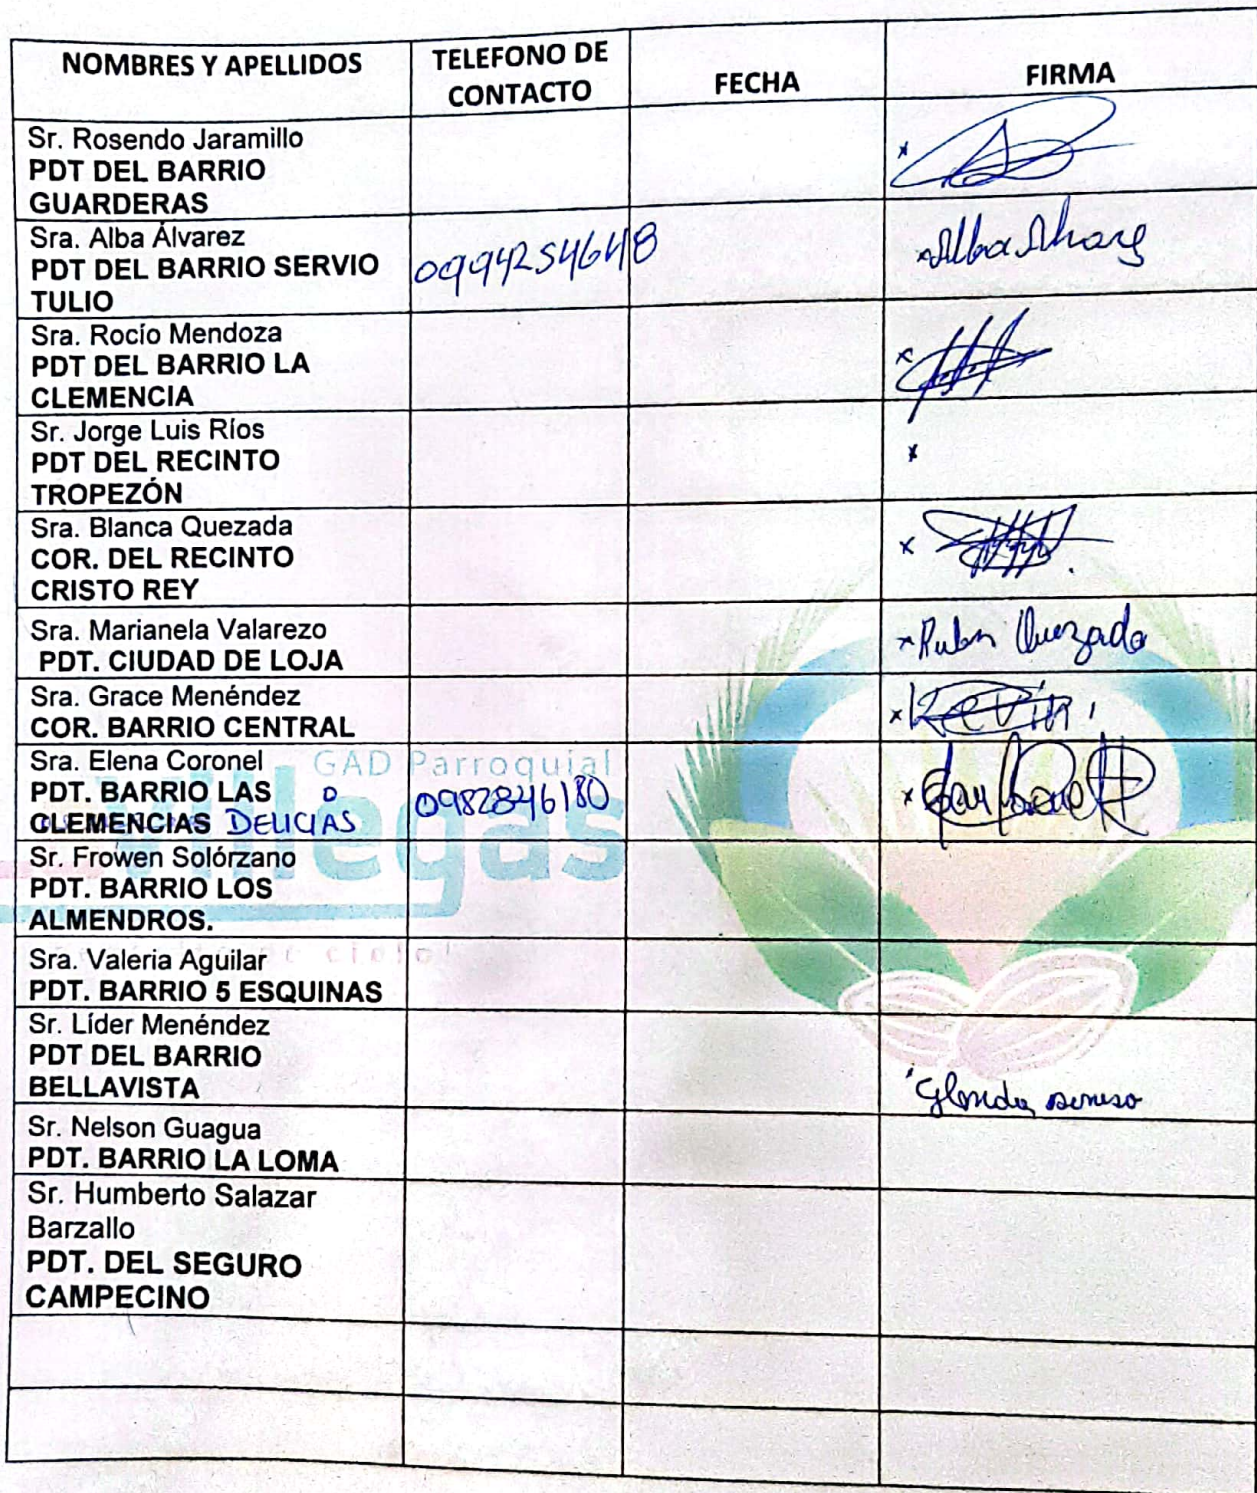 NOMBRES Y APELLIDOS
TELEFONO DE
CONTACTO
FECHA
FIRMA
Sr. Rosendo Jaramillo
PDT DEL BARRIO
GUARDERAS
Sra. Alba Álvarez
PDT DEL BARRIO SERVIO
TULIO
x Alba Alvarez
Sra. Rocío Mendoza
PDT DEL BARRIO LA
CLEMENCIA
Sr. Jorge Luis Ríos
PDT DEL RECINTO
TROPEZÓN
x
Sra. Blanca Quezada
COR. DEL RECINTO
CRISTO REY
x
Sra. Marianela Valarezo
PDT. CIUDAD DE LOJA
x Ruben Quezada
Sra. Grace Menéndez
COR. BARRIO CENTRAL
x Kevin
Sra. Elena Coronel
PDT. BARRIO LAS
CLEMENCIAS DELICIAS
0982846180
GAD Parroquial
Villegas
Sr. Frowen Solórzano
PDT. BARRIO LOS
ALMENDROS.
Sra. Valeria Aguilar
PDT. BARRIO 5 ESQUINAS
Sr. Líder Menéndez
PDT DEL BARRIO
BELLAVISTA
Sr. Nelson Guagua
PDT. BARRIO LA LOMA
Sr. Humberto Salazar
Barzallo
PDT. DEL SEGURO
CAMPECINO